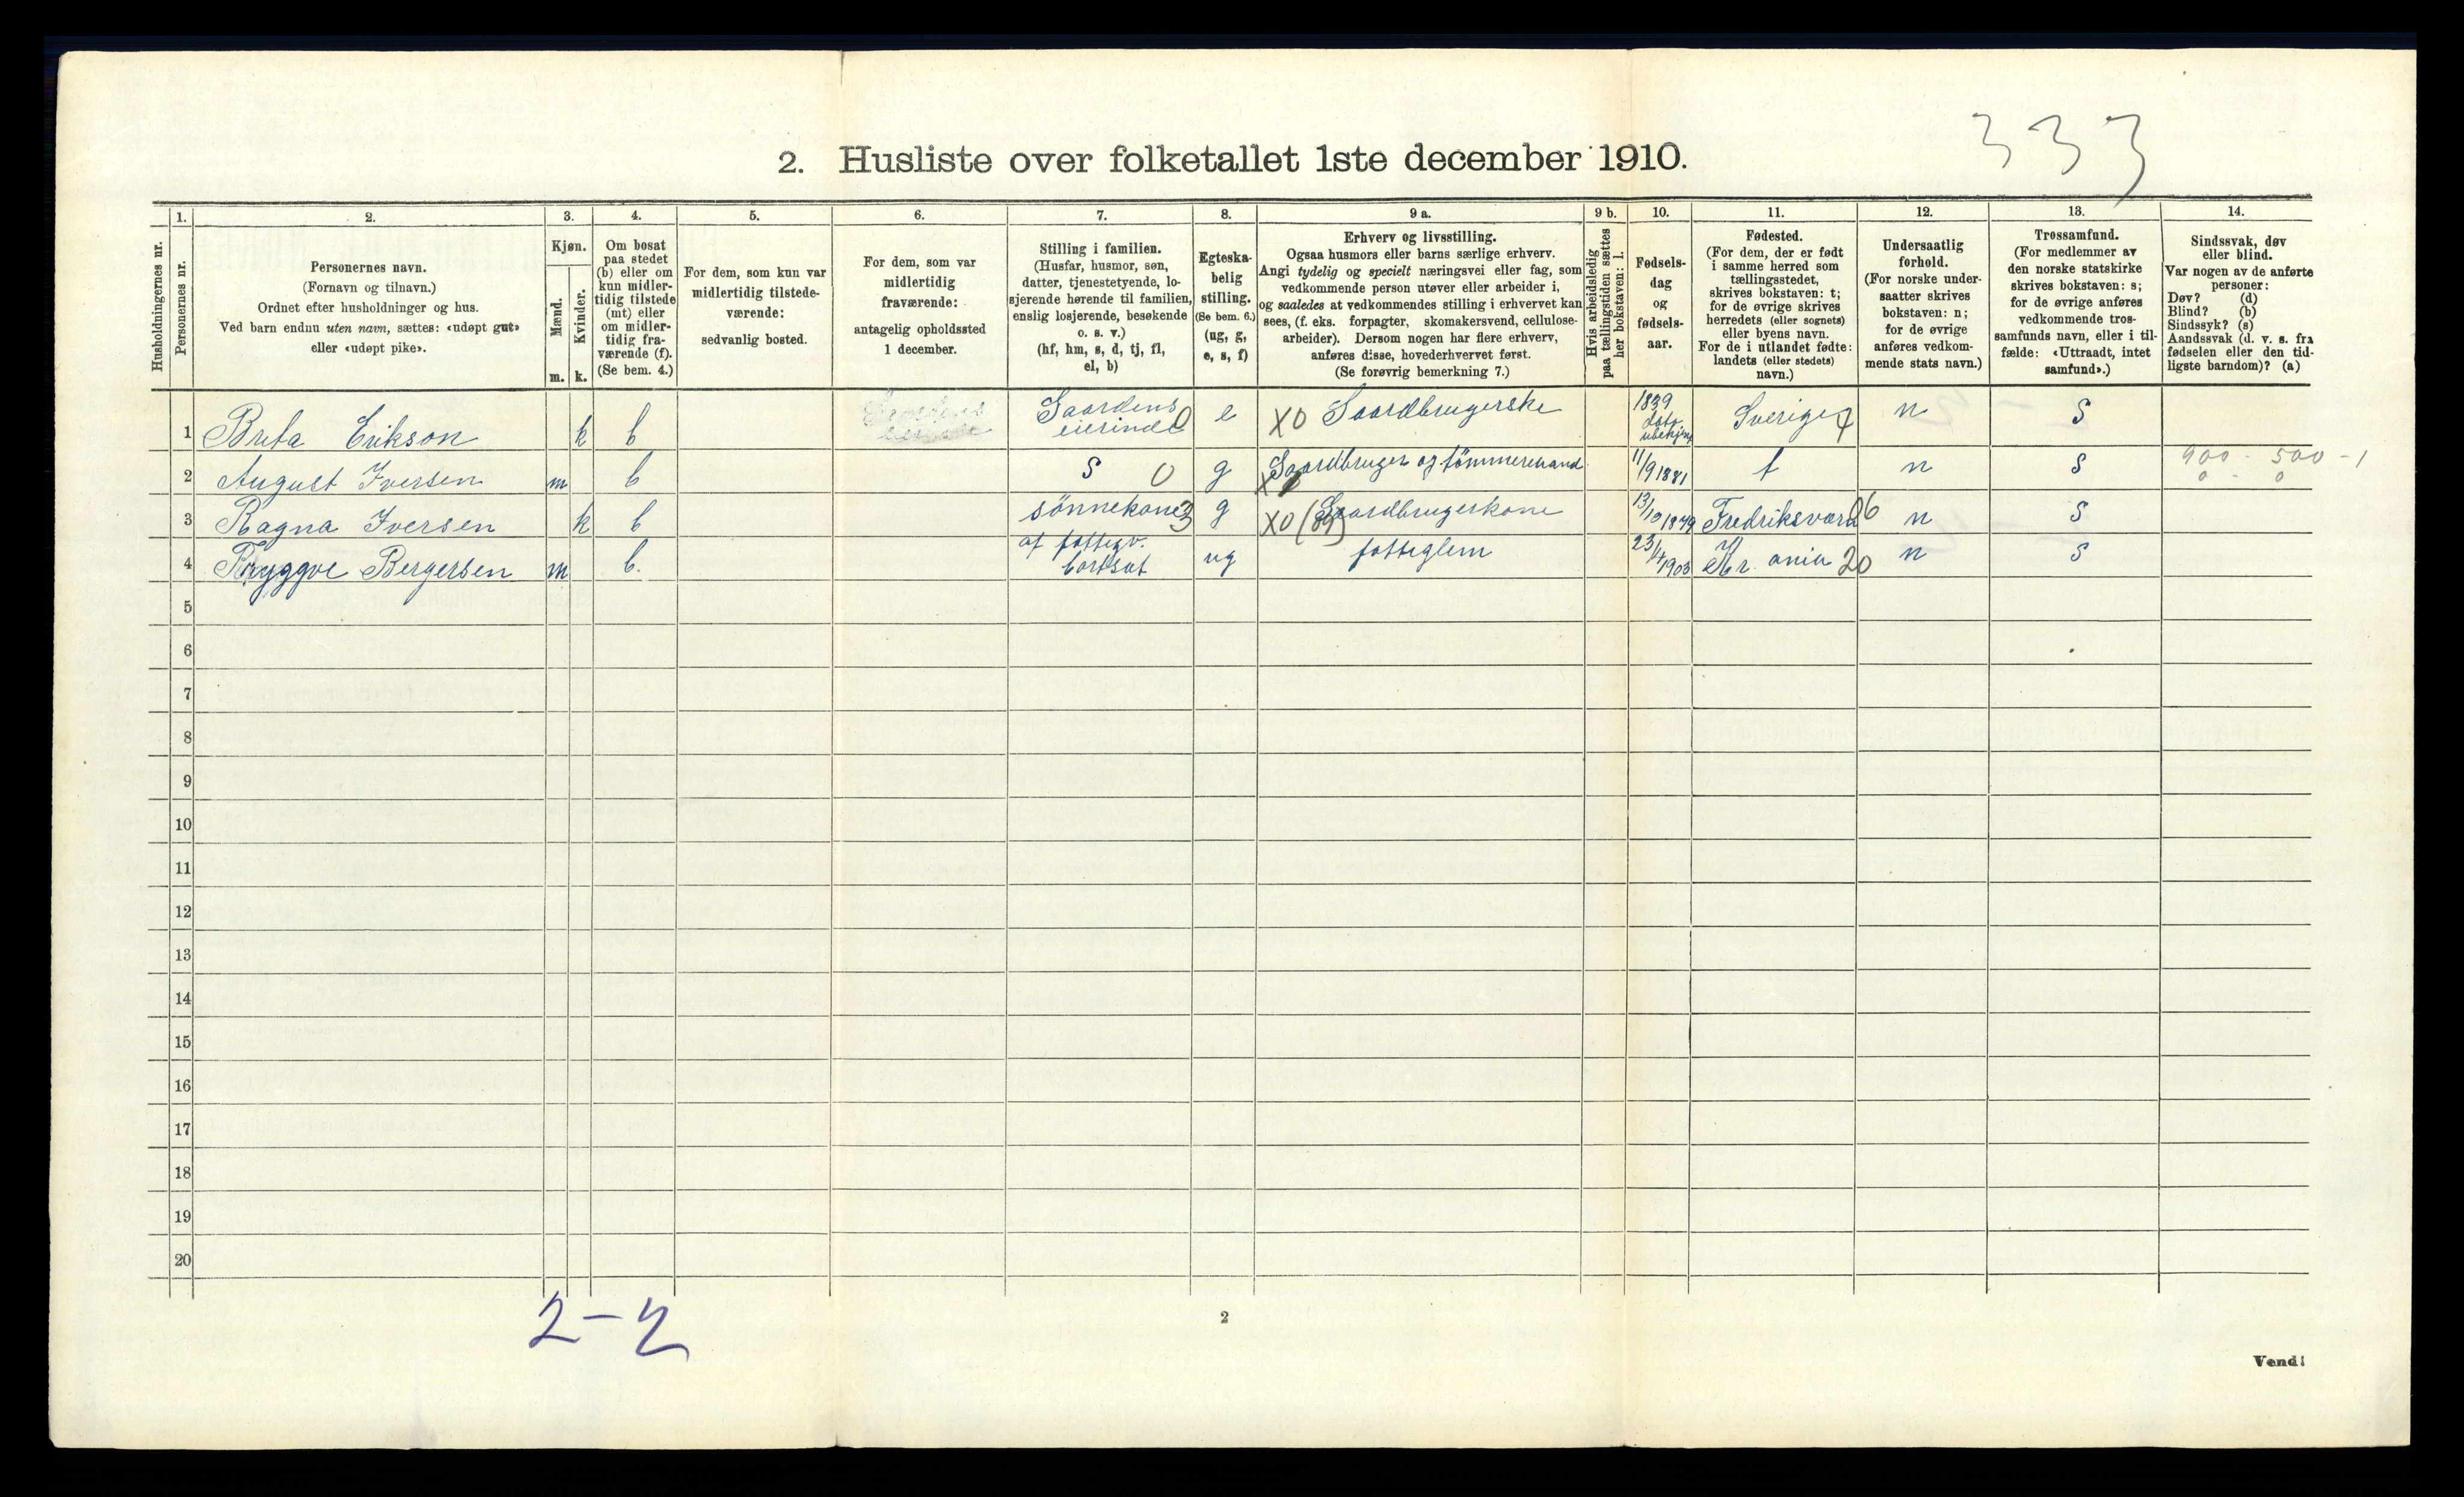 333
2. Husliste over folketallet 1ste december 1910.
Husholdningernes nr.
1.
Personernes nr.
2.
Personernes navn.
(Fornavn og tilnavn.)
Ordnet efter husholdninger og hus.
Ved barn endnu uten navn, sættes: «udøpt gut»
eller «udøpt pike».
3.
Kjøn.
Mænd.
m.
Kvinder.
k.
4.
Om bosat
paa stedet
(b) eller om
kun midler-
tidig tilstede
(mt) eller
om midler-
tidig fra-
værende (f).
(Se bem. 4.)
5.
For dem, som kun var
midlertidig tilstede-
værende:
sedvanlig bosted.
6.
For dem, som var
midlertidig
fraværende:
antagelig opholdssted
1 december.
7.
Stilling i familien.
(Husfar, husmor, søn,
datter, tjenestetyende, lo-
sjerende hørende til familien,
enslig losjerende, besøkende
o. s. v.)
(hf, hm, s, d, tj, fl,
el, b)
8.
Egteska-
belig
stilling.
(Se bem. 6.)
(ug, g,
e, s, f)
9 a.
Erhverv og livsstilling.
Ogsaa husmors eller barns særlige erhverv.
Angi tydelig og specielt næringsvei eller fag, som
vedkommende person utøver eller arbeider i,
og saaledes at vedkommendes stilling i erhvervet kan
sees, (f. eks. forpagter, skomakersvend, cellulose-
arbeider). Dersom nogen har flere erhverv,
anføres disse, hovederhvervet først.
(Se forøvrig bemerkning 7.)
9 b.
Hvis arbeidsledig
paa tællingstiden sættes
her bokstaven: l.
10.
Fødsels-
dag
og
fødsels-
aar.
11.
Fødested.
(For dem, der er født
i samme herred som
tællingsstedet,
skrives bokstaven: t;
for de øvrige skrives
herredets (eller sognets)
eller byens navn.
For de i utlandet fødte:
landets (eller stedets)
navn.)
12.
Undersaatlig
forhold.
(For norske under-
saatter skrives
bokstaven: n;
for de øvrige
anføres vedkom-
mende stats navn.)
13.
Trossamfund.
(For medlemmer av
den norske statskirke
skrives bokstaven: s;
for de øvrige anføres
vedkommende tros-
samfunds navn, eller i til-
fælde: «Uttraadt, intet
samfund».)
14.
Sindssvak, døv
eller blind.
Var nogen av de anførte
personer:
Døv? (d)
Blind? (b)
Sindssyk? (s)
Aandssvak (d. v. s. fra
fødselen eller den tid-
ligste barndom)? (a)
1 Brita Erikson k b Gaardens eierinde 0 e X0 Gaardbrugerske 1839 Dato ubekjent Sverige n S
2 August Iversen m b S 0 g Gaardbruger og tömmermand 11/9 1881 t n S 900 - 500 - 1
0 - 0
3 Ragna Iversen k b sönnekone 3 g X0 Gaardbrugerkone 13/10 1879 Fredriksværn 06 n S
4 Tryggve Bergersen m b. af fattigv. bortsat ug fattiglem 23/4 1903 Kr. ania 20 n S
5
6
7
8
9
10
11
12
13
14
15
16
17
18
19
20
2-2
2
Vend!